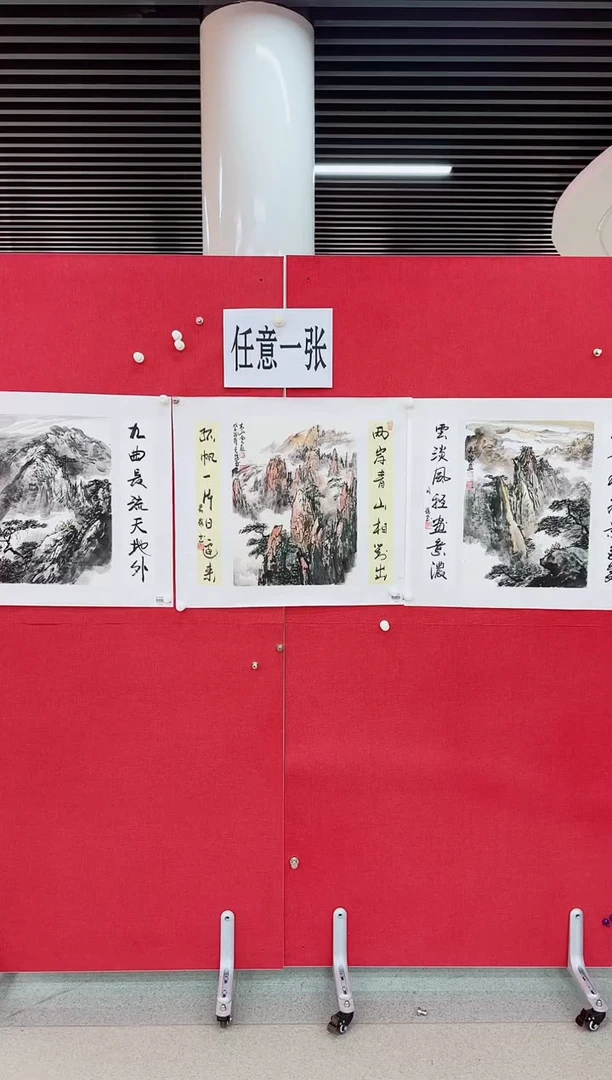 任意一张
九曲長流天地外
两岸青山相對出
孤帆一片日邊来
雲淡風輕畫意濃